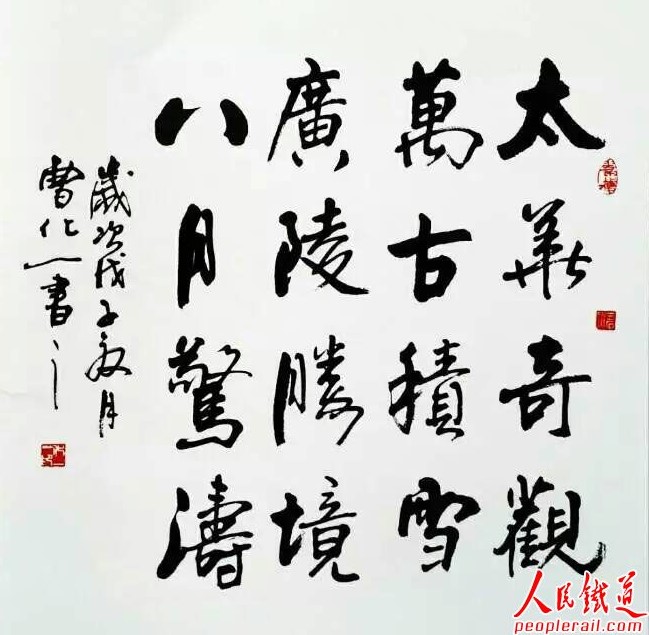 太華奇觀
萬古積雪
廣陵勝境
八月驚濤
歲次戊子夏月
曹化一書之
人民鐵道
peoplerail.com